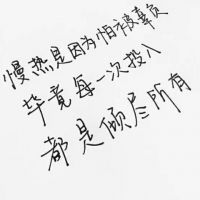 慢热是因为怕被辜负
毕竟每一次投入
都是倾尽所有